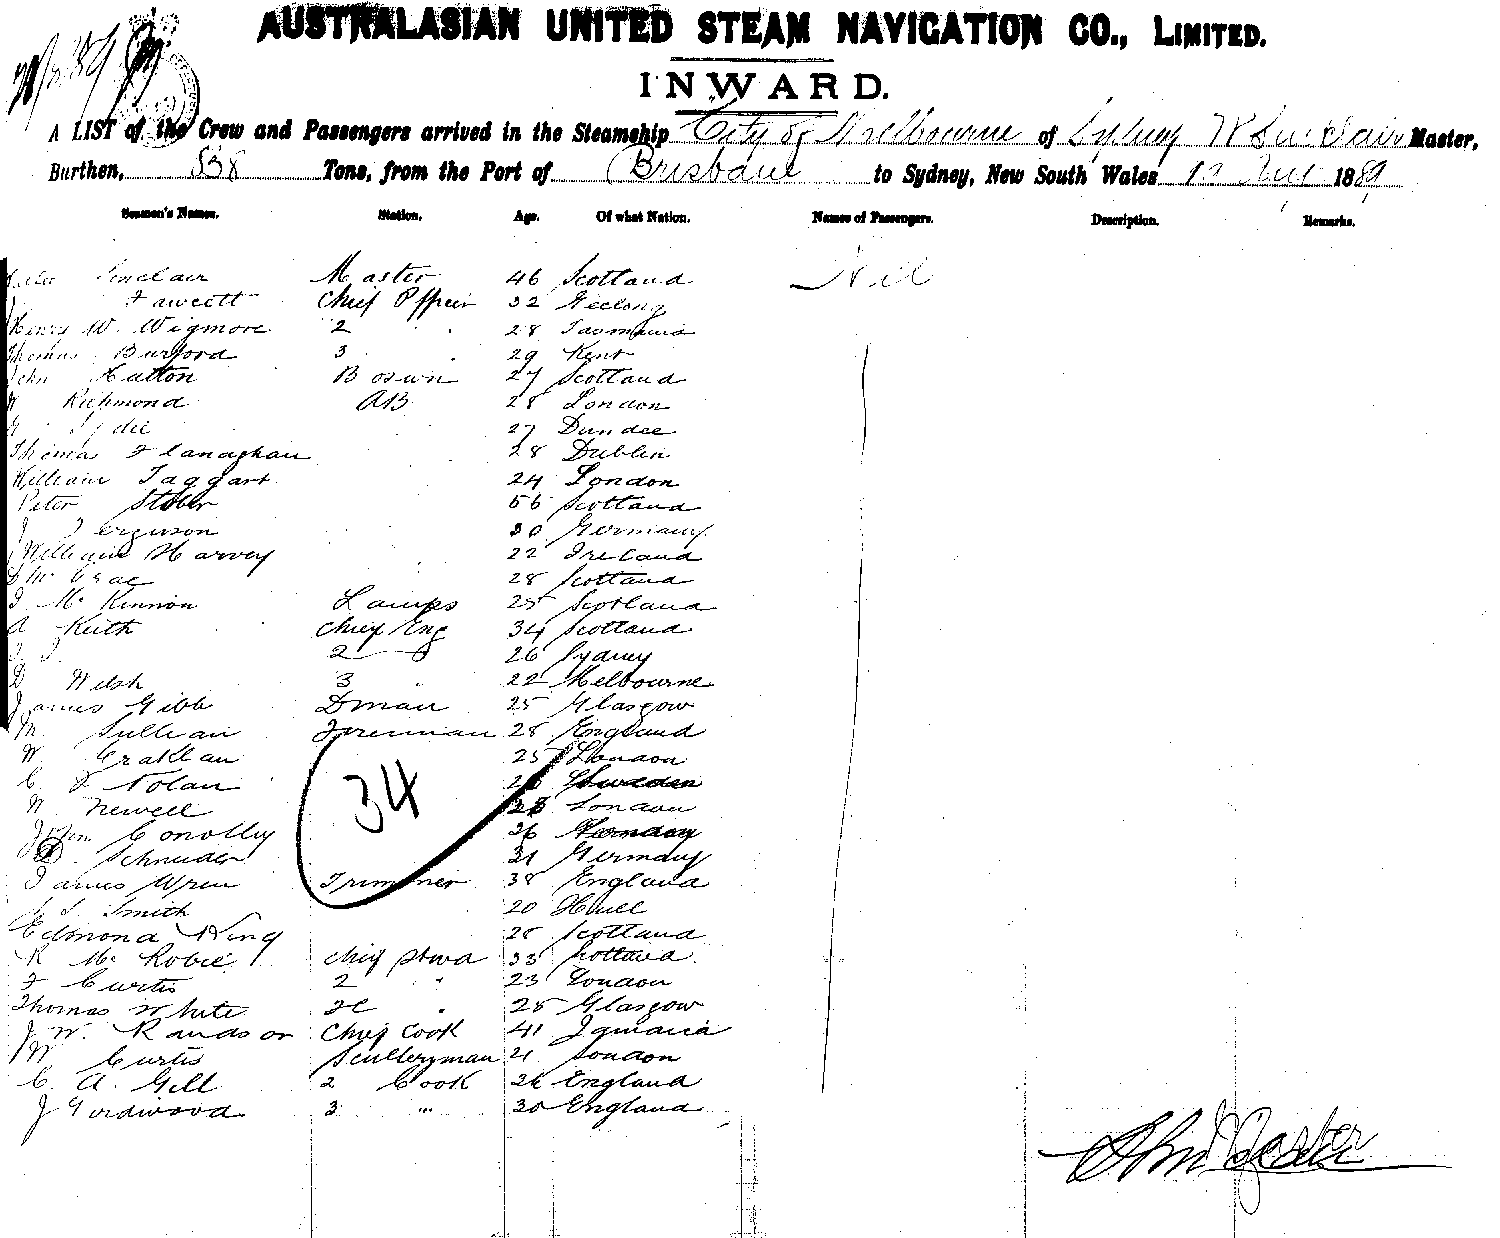 AUSTRALASIAN UNITED STEAM NAVIGATION CO., LIMITED.
INWARD.
A LIST of the Crew and Passengers arrived in the Steamship City of Melbourne of Sydney W Sinclair Master,
Burthen, 838 Tons, from the Port of Brisbane to Sydney, New South Wales 1889
Seamen's Names. Station. Age. Of what Nation. Names of Passengers. Description. Remarks.
Sinclair Master 46 Scotland Nil
Fawcett Chief Officer 32 Geelong
Henry W. Wigmore 2 " 28 Tasmania
Thomas Burford 3 " 29 Kent
John Hatton Boswn 27 Scotland
W Richmond AB 28 London
27 Dundee
Thomas Flanaghan 28 Dublin
William Taggart 24 London
Peter Stober 56 Scotland
J Ferguson 30 Germany
William Harvey 22 Ireland
28 Scotland
J McKinnon Lamps 25 Scotland
A Keith Chief Eng 34 Scotland
2 26 Sydney
D Welsh 3 22 Melbourne
James Gibb Dman 25 Glasgow
M Sullivan Fireman 28 England
W 25 London
C F Nolan Sweden
W Newell London
John Conolly 26 Germany
Schneider 31 Germany
James Wren Trimmer 38 England
Smith 20 Hull
Edmond King 25 Scotland
R McRobie Chief Stwd 33 Scotland
F Curtis 2 " 23 London
Thomas White 25 Glasgow
J W. Randson Chief Cook 41 Jamaica
W Curtis Sculleryman 21 London
C. A. Gill 2 Cook 26 England
J Girdwood 3 " 30 England
34